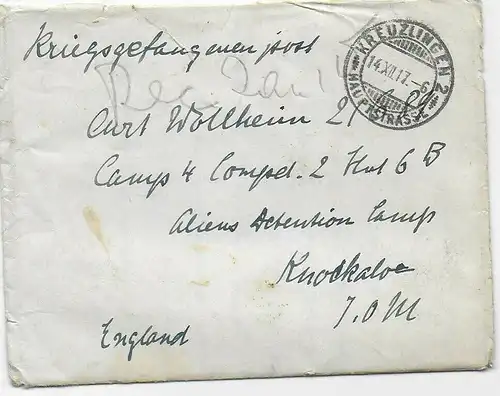 Kriegsgefangenenpost
KREUZLINGEN 2
14.XII.17.-6
HAUPTSTRASSE
Rec. Jan
Curt Wollheim
Camp 4 Compd. 2 Hut 6 B
Aliens Detention Camp
Knockaloe
I.O.M
England